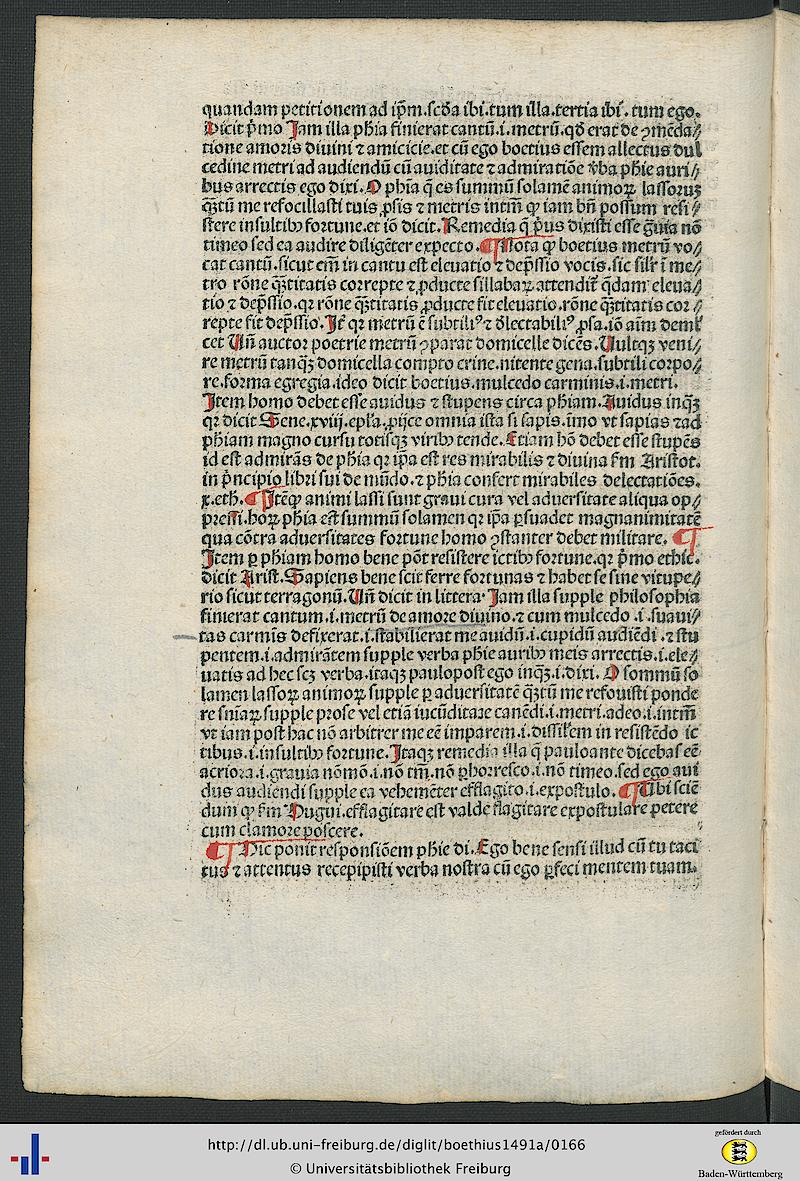 quandam petitionem ad ip̄m.scd̄a ibi.tum illa.tertia ibi. tum ego.
Dicit p̄mo Jam illa ph̄ia finierat cantū.i.metrū.qd̄ erat de ꝯmēda⸗
tione amoris diuini ⁊ amicicie.et cū ego boetius essem allectus dul
cedine metri ad audiendū cū auiditate ⁊ admiratiōe v̄ba phie auri⸗
bus arrectis ego dixi.O phīa q̄ es summū solamē animoꝝ lassoruꝫ
qꝫtū me refocillasti tuis ꝓsis ⁊ metris intm̄ ꝙ iam bn̄ possum resi⸗
stere insultibꝰ fortune.et iō dicit.Remedia q̄ p̄us dixisti esse gͣuia nō
timeo sed ea audire diligēter expecto.¶Nota ꝙ boetius metrū vo⸗
cat cantū.sicut em̄ in cantu est eleuatio ⁊ dep̄ssio vocis.sic silr̄ ī me⸗
tro rōne qꝫtitatis correpte ⁊ ꝓducte sillabaꝝ attendit᷑ q̄dam eleua⸗
tio ⁊ dep̄ssio.qꝛ rōne qꝫtitatis ꝓducte fit eleuatio.rōne qꝫtitatis cor⸗
repte fit dep̄ssio.It̄ qꝛ metrū ē subtiliꝰ ⁊ dl̄ectabiliꝰ ꝓsa.iō
cet Un̄ auctor poetrie metrū ꝯparat domicelle dicēs.Uultqꝫ veni⸗
re metrū tanqꝫ domicella compto crine.nitente gena.subtili corpo⸗
re.forma egregia.ideo dicit boetius.mulcedo carminis.i.metri.
Item homo debet esse auidus ⁊ stupens circa phiam.Auidus inqꝫ
qꝛ dicit Sene.xviij.epl̄a.ꝓijce omnia ista si sapis.īmo vt sapias ⁊ad
ph̄iam magno cursu totisqꝫ viribꝰ tende.Etiam hō debet esse stupēs
id est admirās de ph̄ia qꝛ ip̄a est res mirabilis ⁊ diuina s̄m Aristot.
in p̄ncipio libri sui de mūdo.⁊ ph̄ia confert mirabiles delectatiōes.
x.eth.¶Itēꝙ animi lassi sunt graui cura vel aduersitate aliqua op⸗
pressi.hoꝝ phia est summū solamen qꝛ ip̄a ꝑsuadet magnanimitatē
qua cōtra aduersitates fortune homo ꝯstanter debet militare. ¶
Item ꝑ phiam homo bene pōt resistere ictibꝰ fortune.qꝛ p̄mo ethic.
dicit Arist.Sapiens bene scit ferre fortunas ⁊ habet se sine vitupe⸗
rio sicut terragonū.Un̄ dicit in littera Jam illa supple philosophia
finierat cantum.i.metrū de amore diuino.⁊ cum mulcedo .i.suaui⸗
tas carmīs defixerat.i.stabilierat me auidū.i.cupidū audiēdi .⁊ stu
pentem.i.admirātem supple verba phie auribꝰ meis arrectis.i.ele⸗
uatis ad hec scꝫ verba.itaqꝫ paulopost ego inqꝫ.i.dixi. O sommū so
lamen lassoꝝ animoꝝ supple ꝑ aduersitatē qꝫtū me refouisti ponde
re sniaꝝ supple prose vel etiā iucūditate canēdi.i.metri.adeo.i.intm̄
vt iam post hac nō arbitrer me eē imparem.i.dissil̄em in resistēdo ic
tibus.i.insultibꝰ fortune.Itaqꝫ remedia illa q̄ pauloante dicebas eē
acriora.i.grauia nōmō.i.nō tm̄.nō ꝑhorresco.i.nō timeo.sed ego aui
dus audiendi supple ea vehemēter efflagito.i.expostulo.¶Ubi sciē
dum ꝙ s̄m Hugui.efflagitare est valde flagitare expostulare petere
cum clamore poscere.
¶Hic ponit responsiōem phie di.Ego bene sensi illud cū tu taci
tus ⁊ attentus recepipisti verba nostra cū ego ꝑfeci mentem tuam.
http://dl.ub.uni-freiburg.de/diglit/boethius1491a/0166
© Universitätsbibliothek Freiburg
gefördert durch
Baden-Württemberg